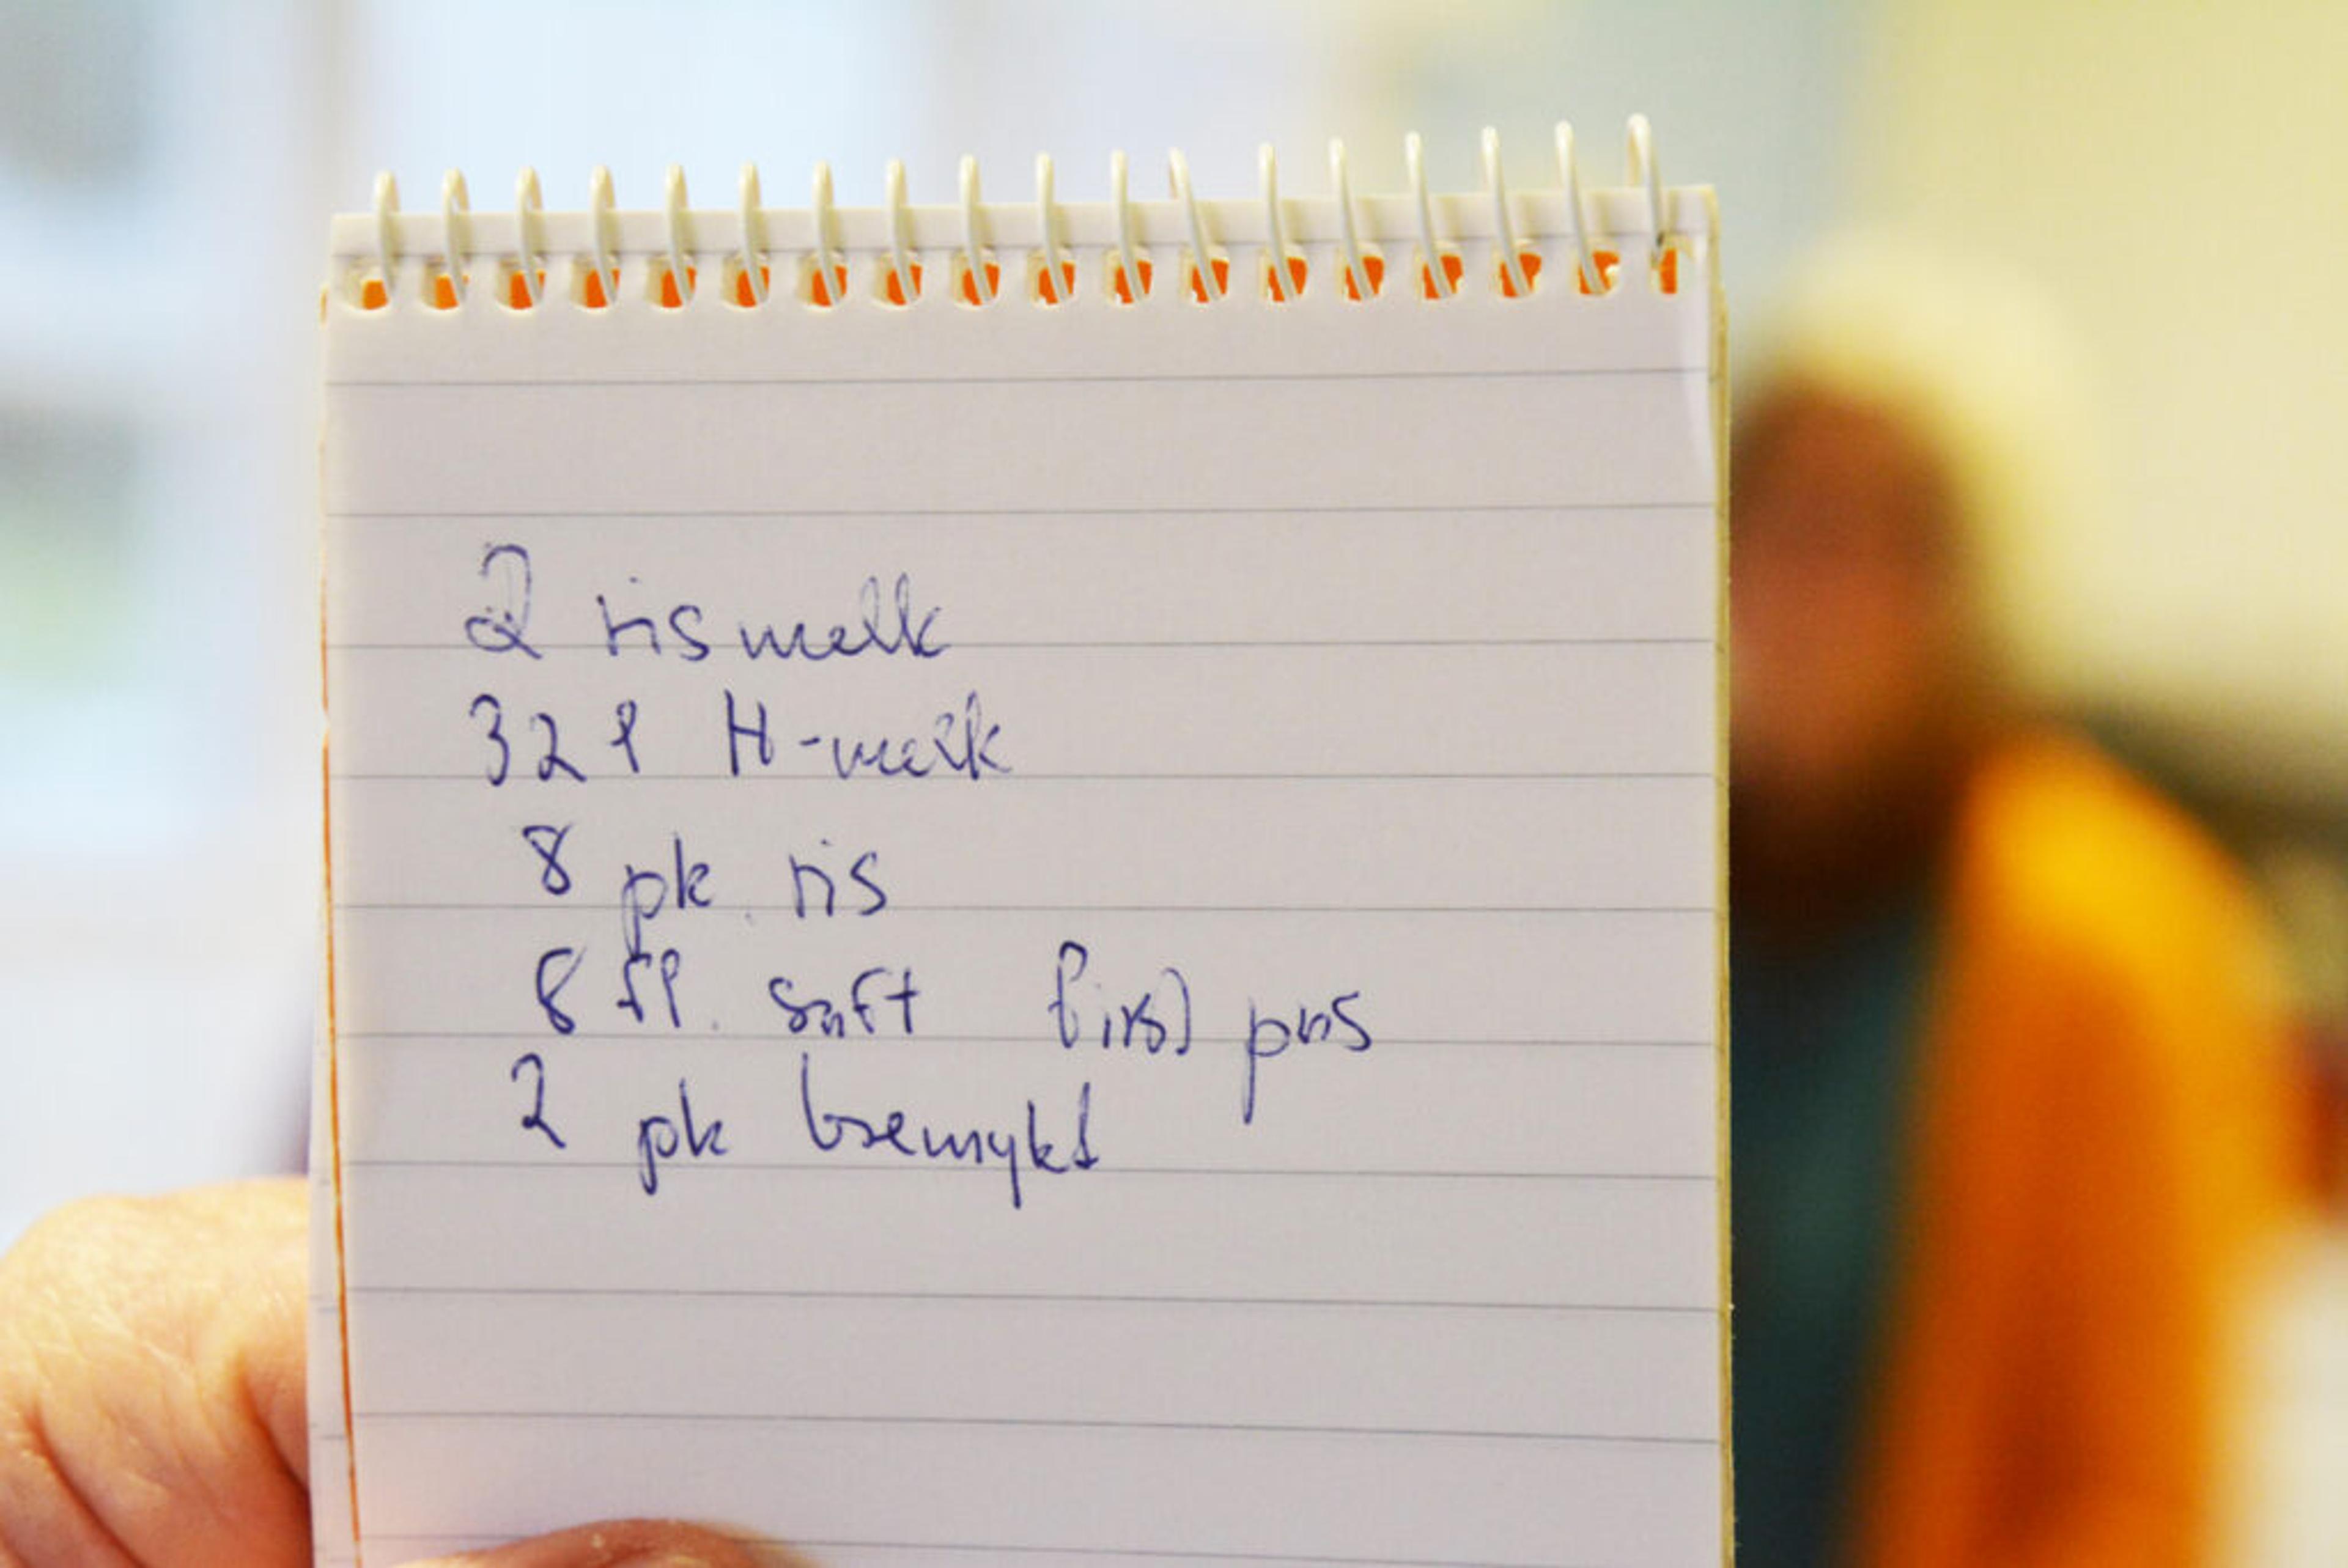 2 rismelk
32 l H-melk
8 pk. ris
8 fl. saft first pris
2 pk bremykt